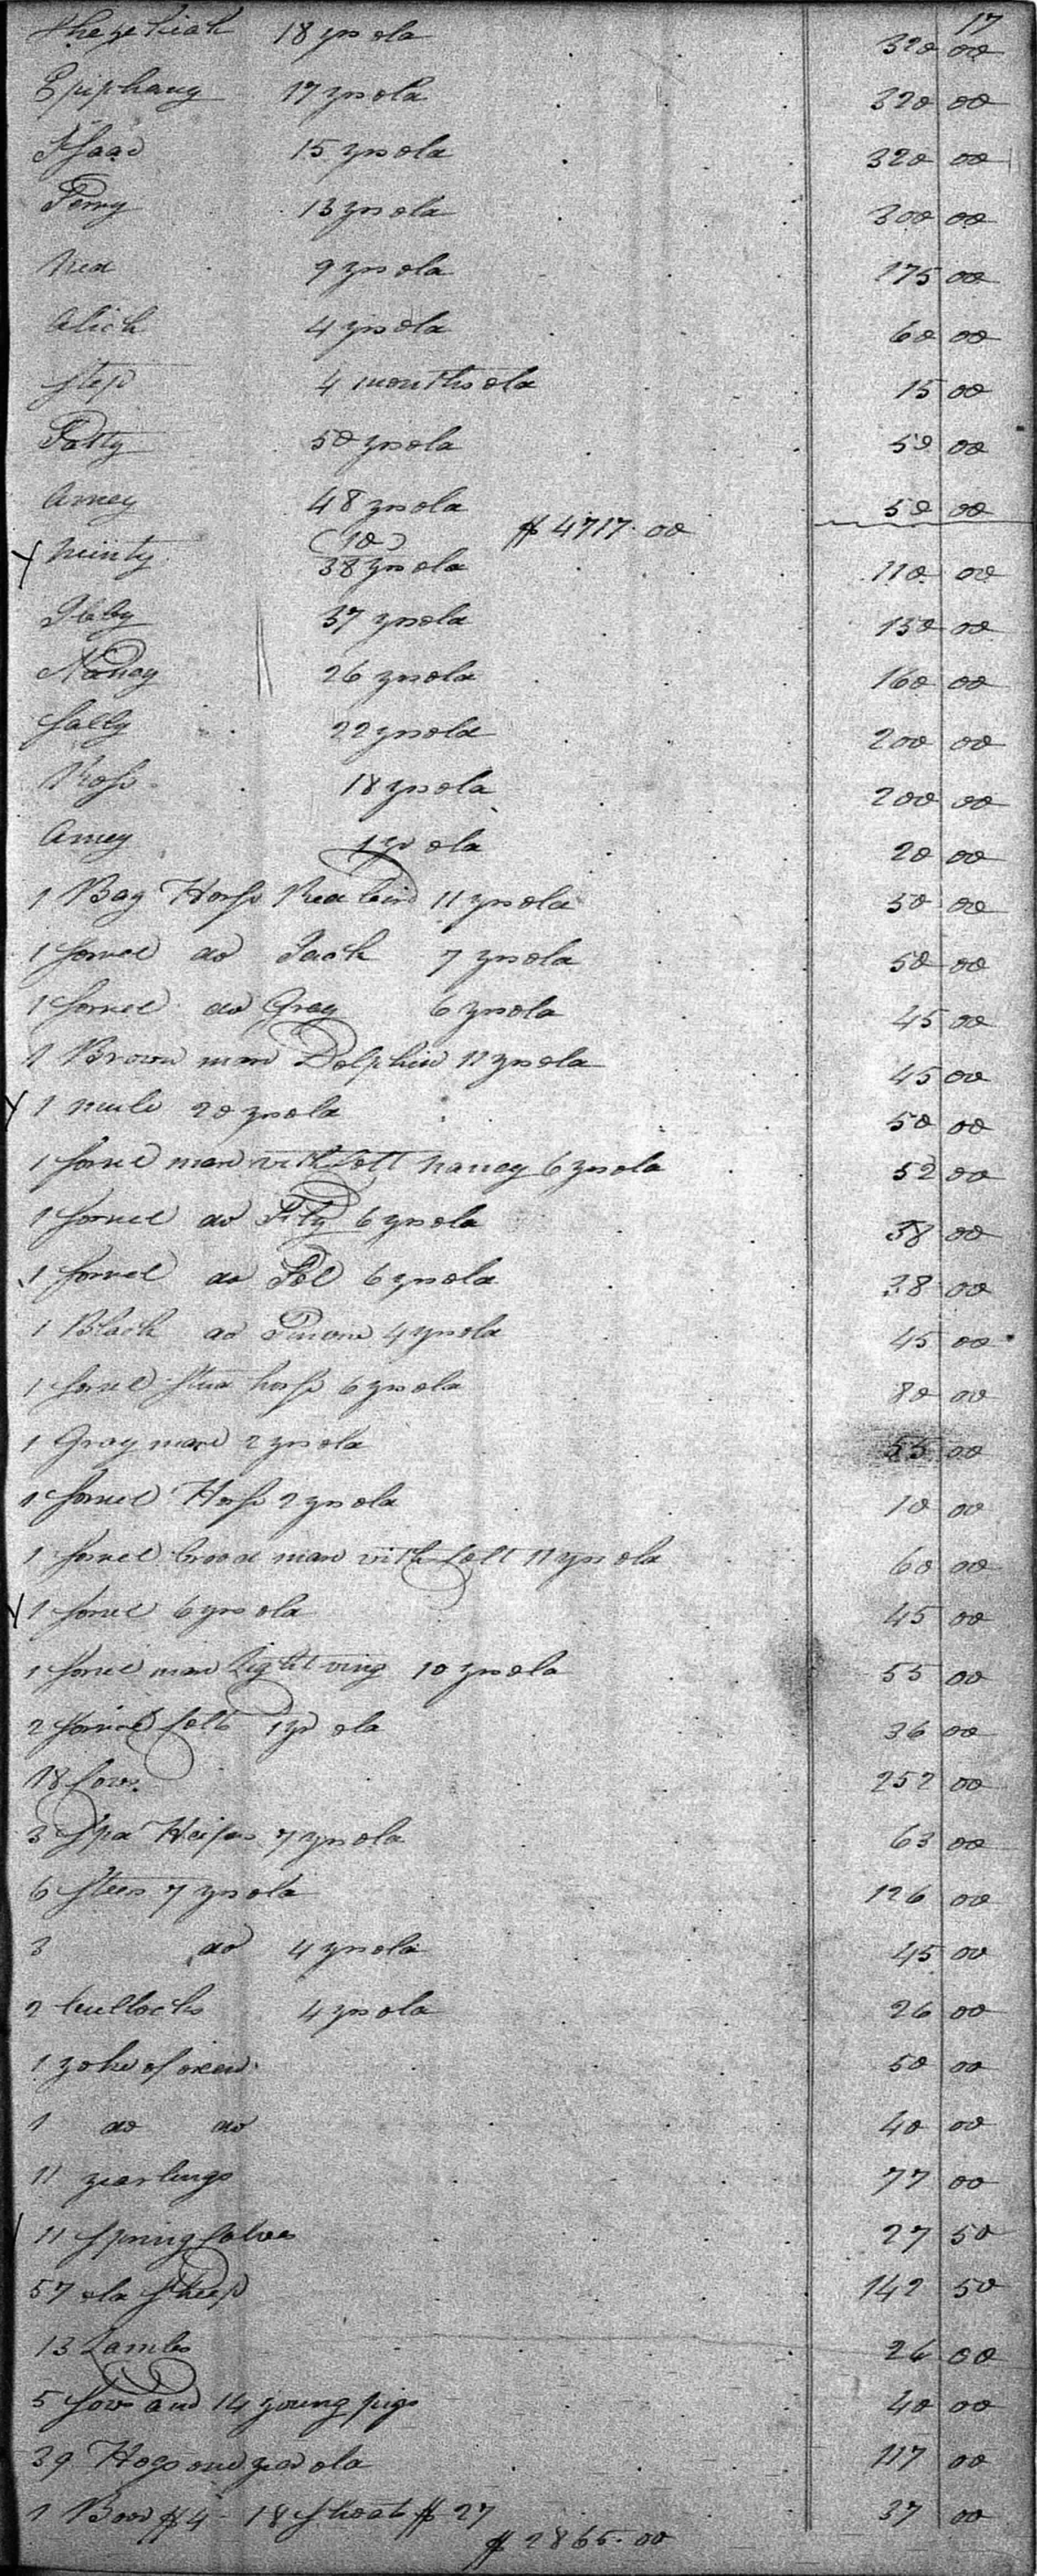 17
Hezekiah 18 yrs old 320 00
Epiphany 17 yrs old 320 00
Isaac 15 yrs old 320 00
Perry 13 yrs old 300 00
Ned 9 yrs old 175 00
Alick 4 yrs old 60 00
Step 4 months old 15 00
Patty 50 yrs old 50 00
Amey 48 yrs old 50 00
(10) $4717.00
Minty 38 yrs old 110 00
Ibby 37 yrs old 130 00
Nancy 26 yrs old 160 00
Sally 22 yrs old 200 00
Rose 18 yrs old 200 00
Amey 1 yr old 20 00
1 Bay Horse Red bird 11 yrs old 50 00
1 Sorrel do Jack 7 yrs old 50 00
1 Sorrel do Grey 6 yrs old 45 00
1 Brown mare Dolphin 11 yrs old 45 00
1 mule 20 yrs old 50 00
1 Sorrel mare with Colt Nancy 6 yrs old 52 00
1 Sorrel do 6 yrs old 38 00
1 Sorrel do Pol 6 yrs old 38 00
1 Black do 4 yrs old 45 00
1 Sorrel Stud horse 6 yrs old 80 00
1 Gray mare 2 yrs old 55 00
1 Sorrel Horse 2 yrs old 10 00
1 Sorrel brood mare with Colt 11 yrs old 60 00
1 Sorrel 6 yrs old 45 00
1 Sorrel mare Lightning 10 yrs old 55 00
2 Sorrel Colts 1 yr old 36 00
18 Cows 252 00
3 Spd Heifers 7 yrs old 63 00
6 Steers 7 yrs old 126 00
3 do 4 yrs old 45 00
2 bullocks 4 yrs old 26 00
1 yoke of oxen 50 00
1 do do 40 00
11 yearlings 77 00
11 Spring Calves 27 50
57 old Sheep 142 50
13 Lambs 26 00
5 Sows and 14 young pigs 40 00
39 Hogs one year old 117 00
1 Boar $4 - 18 Shoats $27 37 00
$2865.00